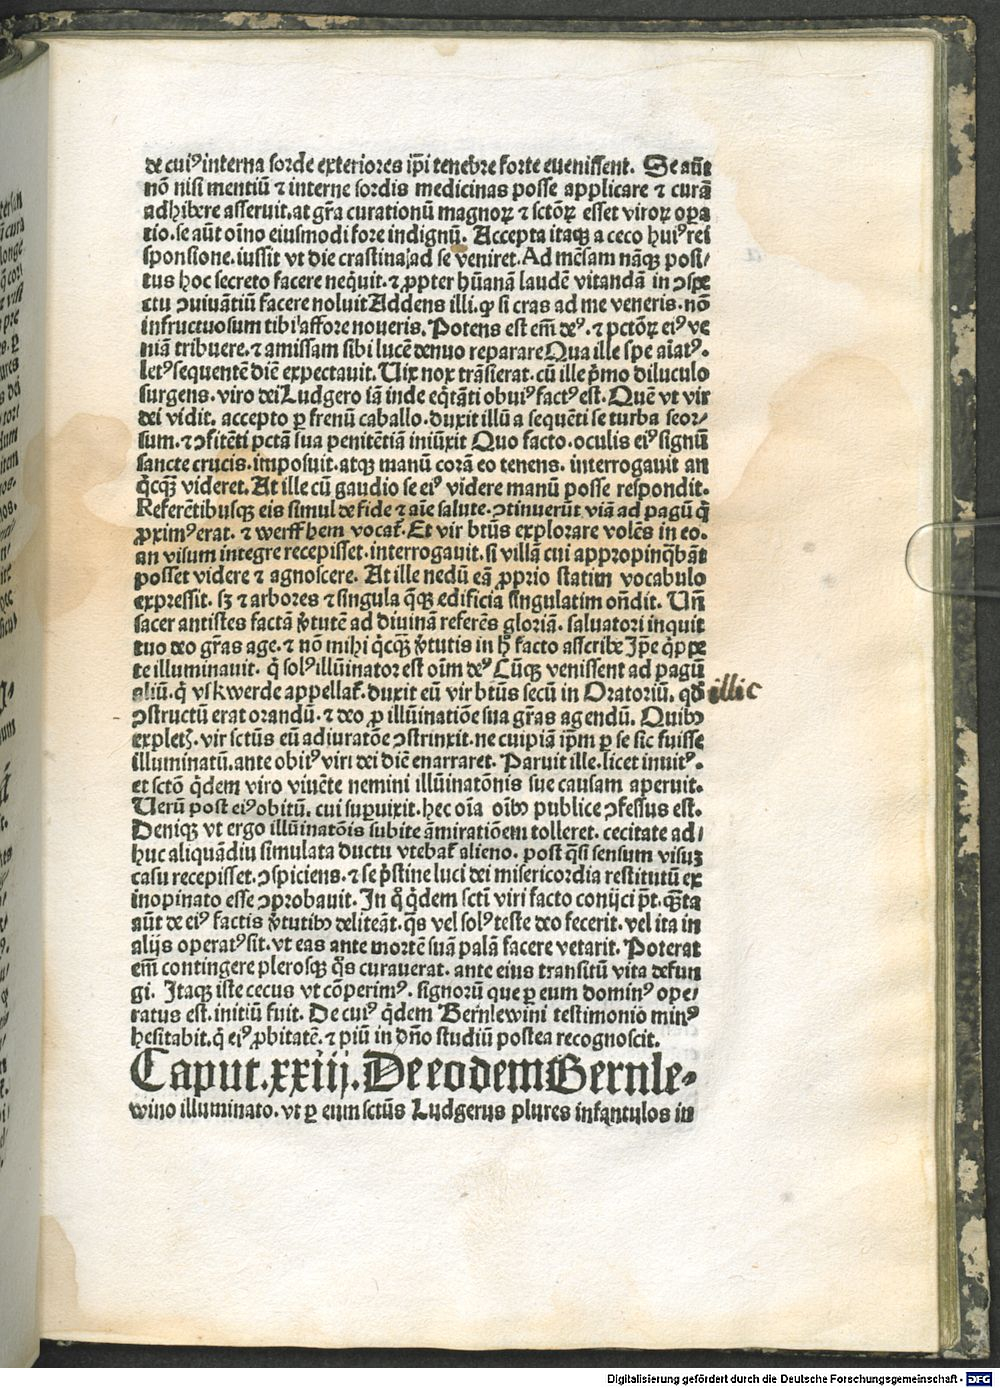 de cuiꝰ interna sorde exteriores ip̄i tenebre forte euenissent. Se aūt
nō nisi mentiū ⁊ interne sordis medicinas posse applicare ⁊ curā
adhibere asseruit. at gr̄a curationū magnoꝝ ⁊ sctōꝝ esset viroꝝ oꝑa
tio. se aūt oīno eiusmodi fore indignū. Accepta itaqꝫ a ceco huiꝰ rei
sponsione. iussit vt die crastina ad se veniret. Ad mēsam nāqꝫ posi/
tus hoc secreto facere neq̇uit. ⁊ ꝓpter hūanā laudē vitandā in ↄspe
ctu ↄuiuātiū facere noluit Addens illi. ꝙ si cras ad me veneris. nō
infructuosum tibi affore noueris. Potens est em̄ deꝰ. ⁊ pctōꝝ eiꝰ ve
niā tribuere. ⁊ amissam sibi lucē denuo reparare Qua ille spe aīatꝰ.
letꝰ sequentē diē expectauit. Vix nox trāsierat. cū ille p̄mo diluculo
surgens. viro dei Ludgero iā inde eq̇tāti obuiꝰ factꝰ est. Quē vt vir
dei vidit. accepto ꝑ frenū caballo. duxit illū a sequēti se turba seor/
sum. ⁊ ↄfitēti pctā sua penitētiā iniūxit Quo facto. oculis eiꝰ signū
sancte crucis. imposuit. atqꝫ manū corā eo tenens. interrogauit an
q̇cqꝫ videret. At ille cū gaudio se eiꝰ videre manū posse respondit.
Referētibusqꝫ eis simul de fide ⁊ aīe salute. ↄtinuerūt viā ad pagū q̇
ꝓximꝰ erat. ⁊ werffhem vocat̄. Et vir btūs explorare volēs in eo.
an visum integre recepisset. interrogauit. si villā cui appropinq̇bāt
posset videre ⁊ agnoscere. At ille nedū eā ꝓprio statim vocabulo
expressit. sꝫ ⁊ arbores ⁊ singula q̄qꝫ edificia singulatim oñdit. Uñ
sacer antistes factā v̄tutē ad diuinā referēs gloriā. saluatori inquit
tuo deo gr̄as age. ⁊ nō mihi q̇cqꝫ v̄tutis in h̄ facto asscribe Ip̄e q̇ppe
te illuminauit. q̇ solꝰ illūinator est oīm deꝰ Cūqꝫ venissent ad pagū
aliū. q̇ vskwerde appellat̄. duxit eū vir btūs secū in Oratoriū. qđ illic
ↄstructū erat orandū. ⁊ deo ꝓ illūinatiōe sua gr̄as agendū. Quibꝫ
expletꝭ. vir sctūs eū adiuratōe ↄstrinxit. ne cuipiā ip̄m ꝑ se sic fuisse
illuminatū. ante obitꝰ viri dei diē enarraret. Paruit ille. licet inuitꝰ.
et sctō q̇dem viro viuēte nemini illūinatōnis sue causam aperuit.
Verū post eiꝰ obitū. cui suꝑuixit. hec oīa oībꝫ publice ↄfessus est.
Deniqꝫ vt ergo illūinatōis subite āmiratiōem tolleret. cecitate ad/
huc aliquādiu simulata ductu vtebat̄ alieno. post q̇si sensum visuꝫ
casu recepisset. ↄspiciens. ⁊ se p̄stine luci dei misericordia restitutū ex
inopinato esse ↄprobauit. In q̇ q̇dem scti viri facto conijci p̄t. q̄ta
aūt de eiꝰ factis v̄tutibꝫ deliteāt. q̄s vel solꝰ teste deo fecerit. vel ita in
alijs operatꝰ sit. vt eas ante mortē suā palā facere vetarit. Poterat
em̄ contingere plerosqꝫ q̇s curauerat. ante eius transitū vita defun
gi. Itaqꝫ iste cecus vt cōperimꝰ. signorū que ꝑ eum dominꝰ ope/
ratus est. initiū fuit. De cuiꝰ q̇dem Bernlewini testimonio minꝰ
hesitabit. q̇ eiꝰ ꝓbitatē. ⁊ piū in dño studiū postea recognoscit.
Caput.xxiij.De eodem Bernle-
wino illuminato. vt ꝑ eum sctūs Ludgerus plures infantulos in
Digitalisierung gefördert durch die Deutsche Forschungsgemeinschaft - DFG